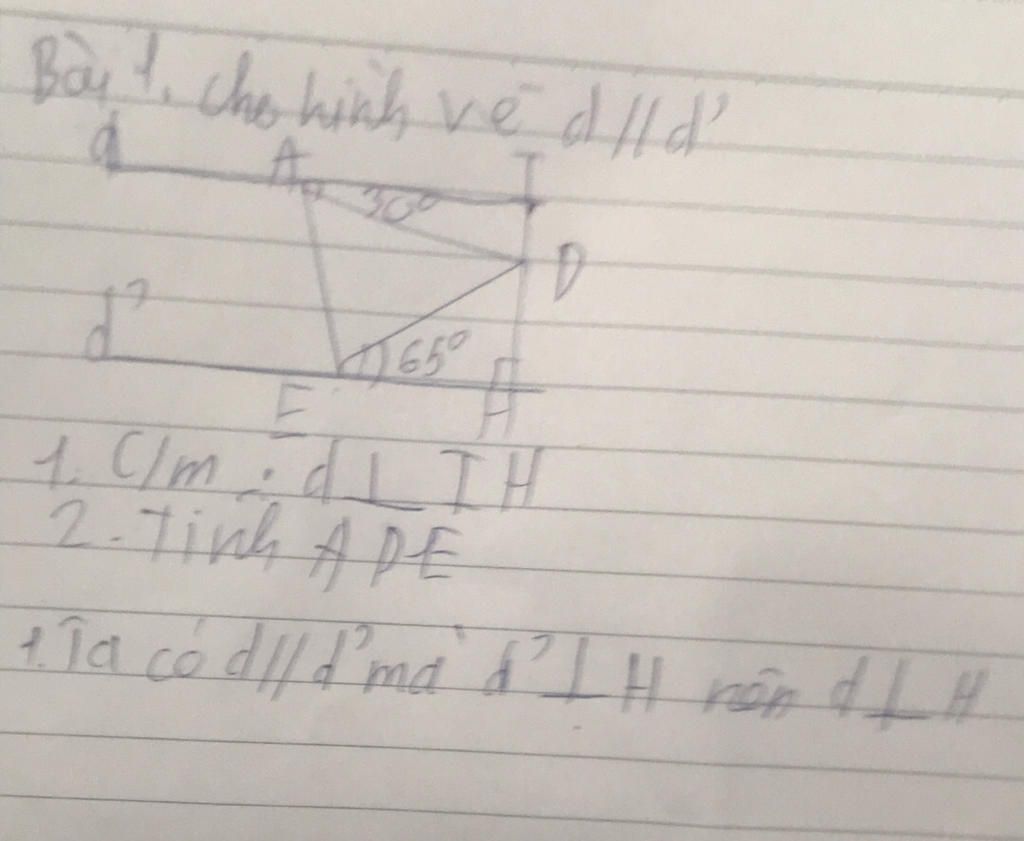 Bài 1. cho hình vẽ d//d'
d A I
30°
D
d'
65°
E H
1. C/m : d ⊥ IH
2. Tính ADE
1. Ta có d//d' mà d' ⊥ H nên d ⊥ H